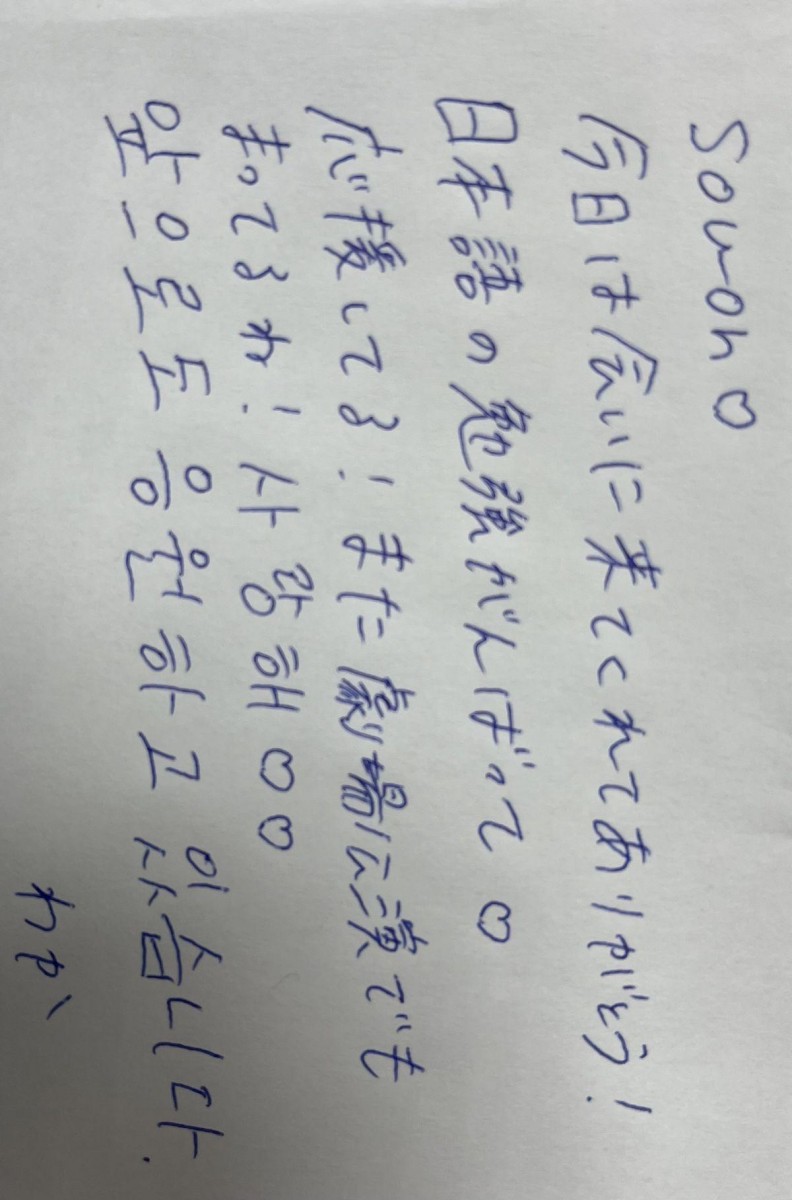 Sowon♡
今日は会いに来てくれてありがとう!
日本語の勉強がんばって♡
応援してる!また劇場に でも
まってるわ! 사랑해♡♡
앞으로도 응원하고 있습니다.
わか